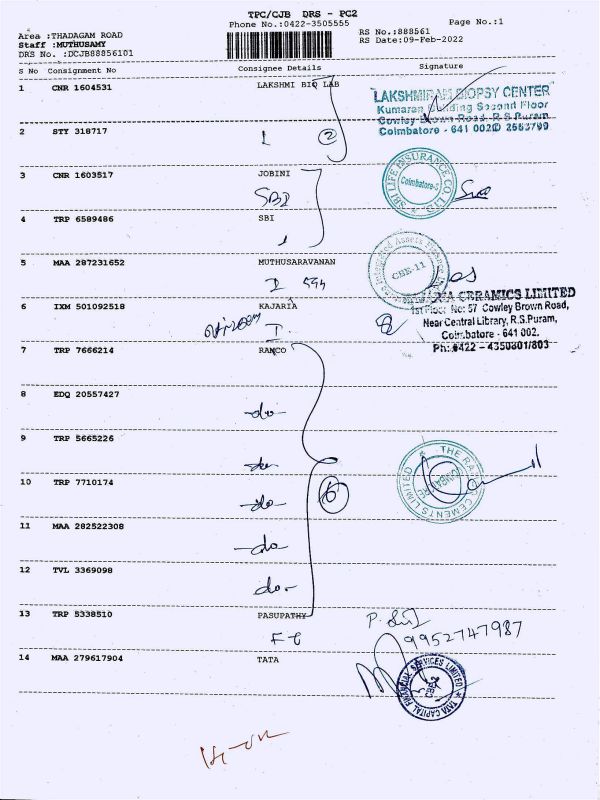 TPC/CJB DRS - PC2
Phone No.:0422-3505555
Page No.:1
Area :THADAGAM ROAD
Staff :MUTHUSAMY
DRS No. :DCJB88856101
RS No.:888561
RS Date:09-Feb-2022
S No Consignment No Consignee Details Signature
1 CNR 1604531 LAKSHMI BIO LAB
LAKSHMIRAM BIOPSY CENTER
Kumaran Building Second Floor
Cowley Brown Road R.S.Puram
Coimbatore - 641 002
2 STY 318717
2
3 CNR 1603517 JOBINI
SBI
SBI LIFE INSURANCE CO. LTD.
Coimbatore-2
4 TRP 6589486 SBI
5 MAA 287231652 MUTHUSARAVANAN
CBE-11
6 IXM 501092518 KAJARIA
CERAMICS LIMITED
1st Floor No: 57 Cowley Brown Road,
Near Central Library, R.S.Puram,
Coimbatore - 641 002.
Ph: 0422 - 4350801/803
7 TRP 7666214 RAMCO
8 EDQ 20557427
-do-
9 TRP 5665226
-do-
10 TRP 7710174
-do-
6
THE RAMCO CEMENTS LIMITED
11 MAA 282522308
-do-
12 TVL 3369098
do-
13 TRP 5338510 PASUPATHY
9952747987
14 MAA 279617904 TATA
TATA CAPITAL FINANCIAL SERVICES LIMITED